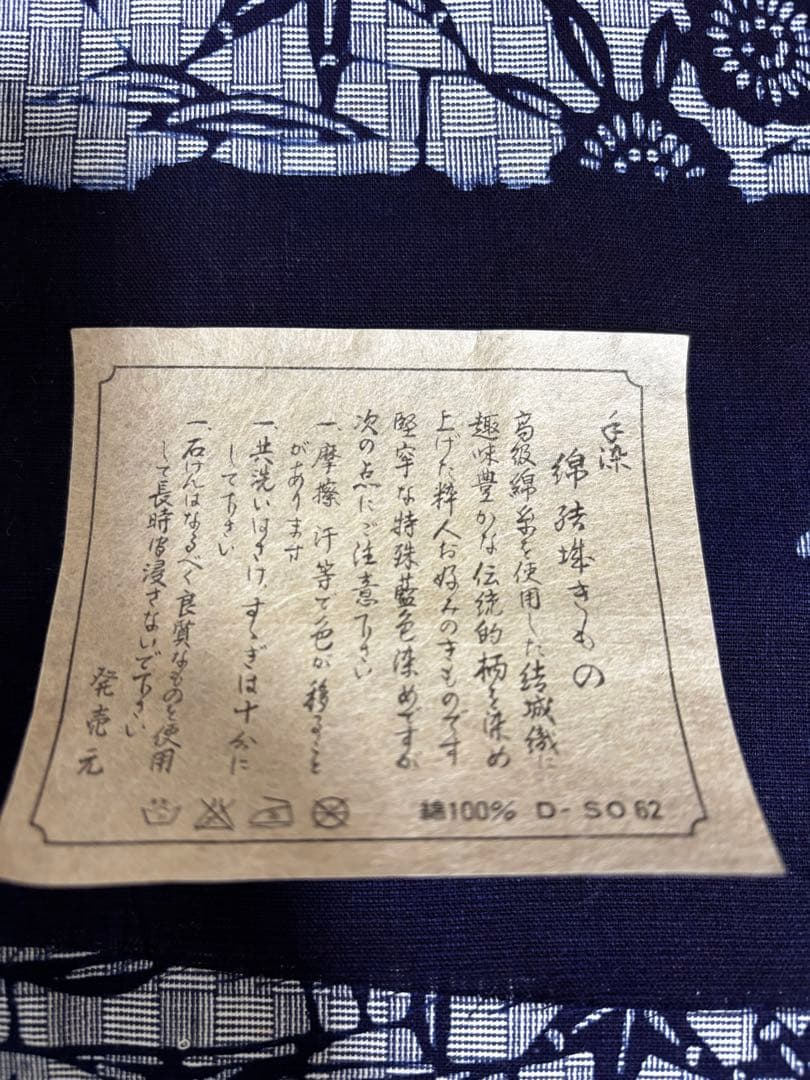 手染
綿結城きもの
高級綿糸を使用した結城織に
趣味豊かな伝統的柄を染め
上げた粋人お好みのきものです
堅牢な特殊藍色染めですが
次の点にご注意下さい
一、摩擦 汗等で色が移ること
があります
一、共洗いはさけ、すゝぎは十分に
して下さい
一、石けんはなるべく良質なものを使用
して長時間浸さないで下さい
発売元
綿100% D-SO62